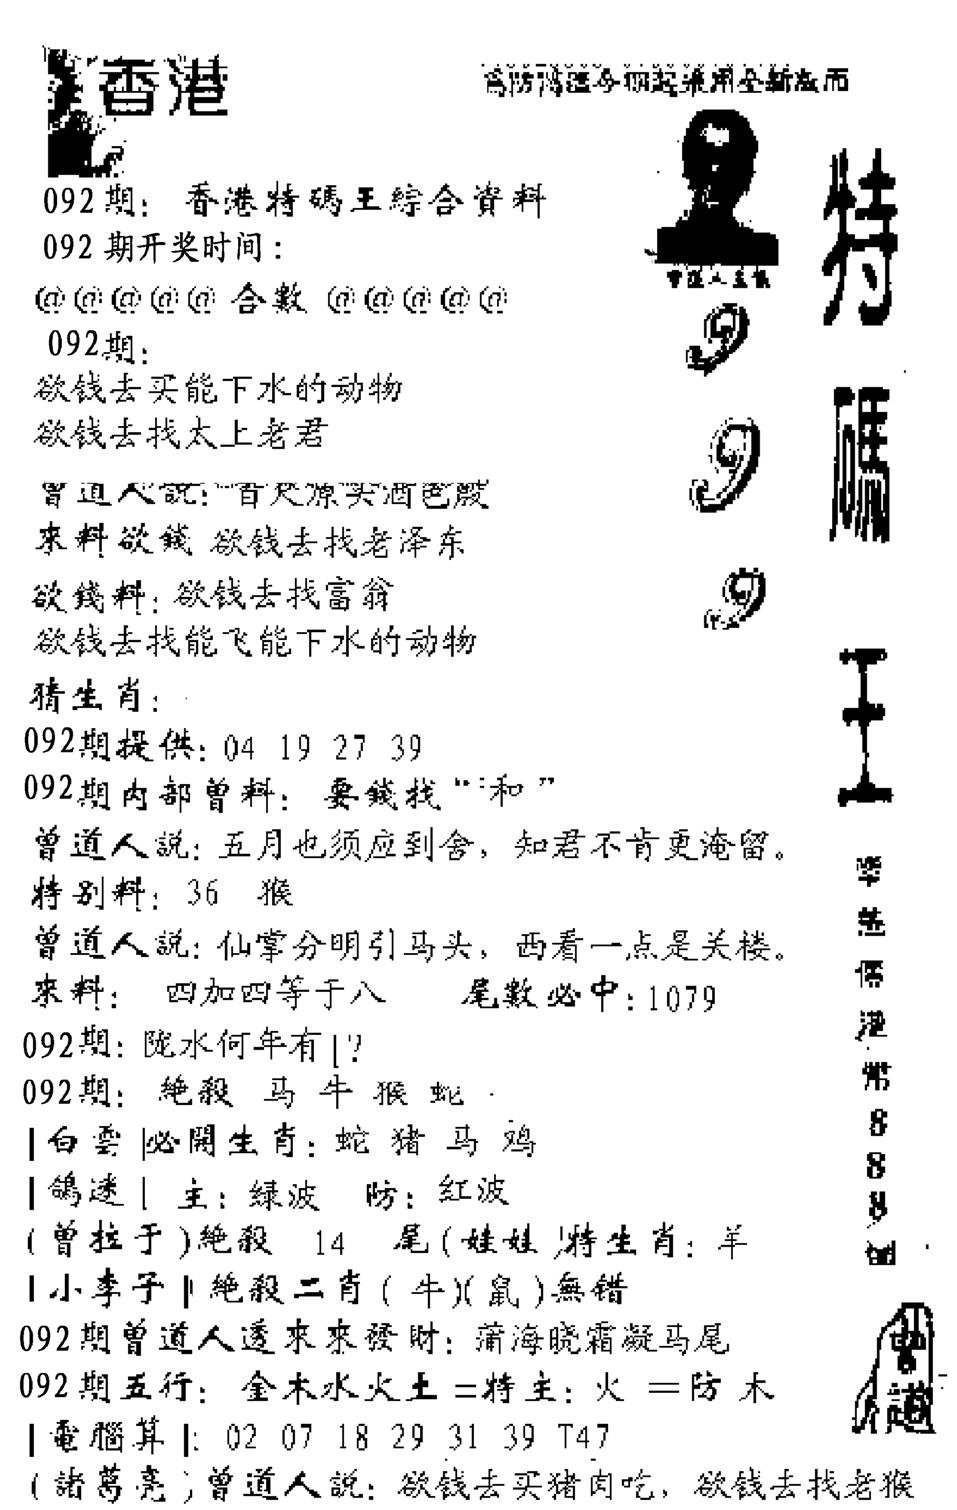 香港
特碼王
999
092期：香港特碼王綜合資料
092期开奖时间：
@@@@@合數@@@@@
092期：
欲钱去买能下水的动物
欲钱去找太上老君
曾道人説：
來料欲錢 欲钱去找老泽东
欲錢料：欲钱去找富翁
欲钱去找能飞能下水的动物
猜生肖：
092期提供：04 19 27 39
092期内部曾料：要錢找“ 和 ”
曾道人説：五月也须应到舍，知君不肯更淹留。
特别料：36 猴
曾道人説：仙掌分明引马头，西看一点是关楼。
來料： 四加四等于八 尾數必中：1079
092期：陇水何年有|?
092期：絶殺 马 牛 猴 蛇
|白雲|必開生肖：蛇 猪 马 鸡
|鴿迷| 主：緑波 防：红波
(曾拉于)絶殺 14 尾(娃娃)特生肖：羊
|小李子|絶殺二肖(牛)(鼠)無错
092期曾道人透來來發財：蒲海晓霜凝马尾
092期五行：金木水火土=特主：火 =防 木
|電腦算|：02 07 18 29 31 39 T47
(諸葛亮)曾道人説：欲钱去买猪肉吃，欲钱去找老猴